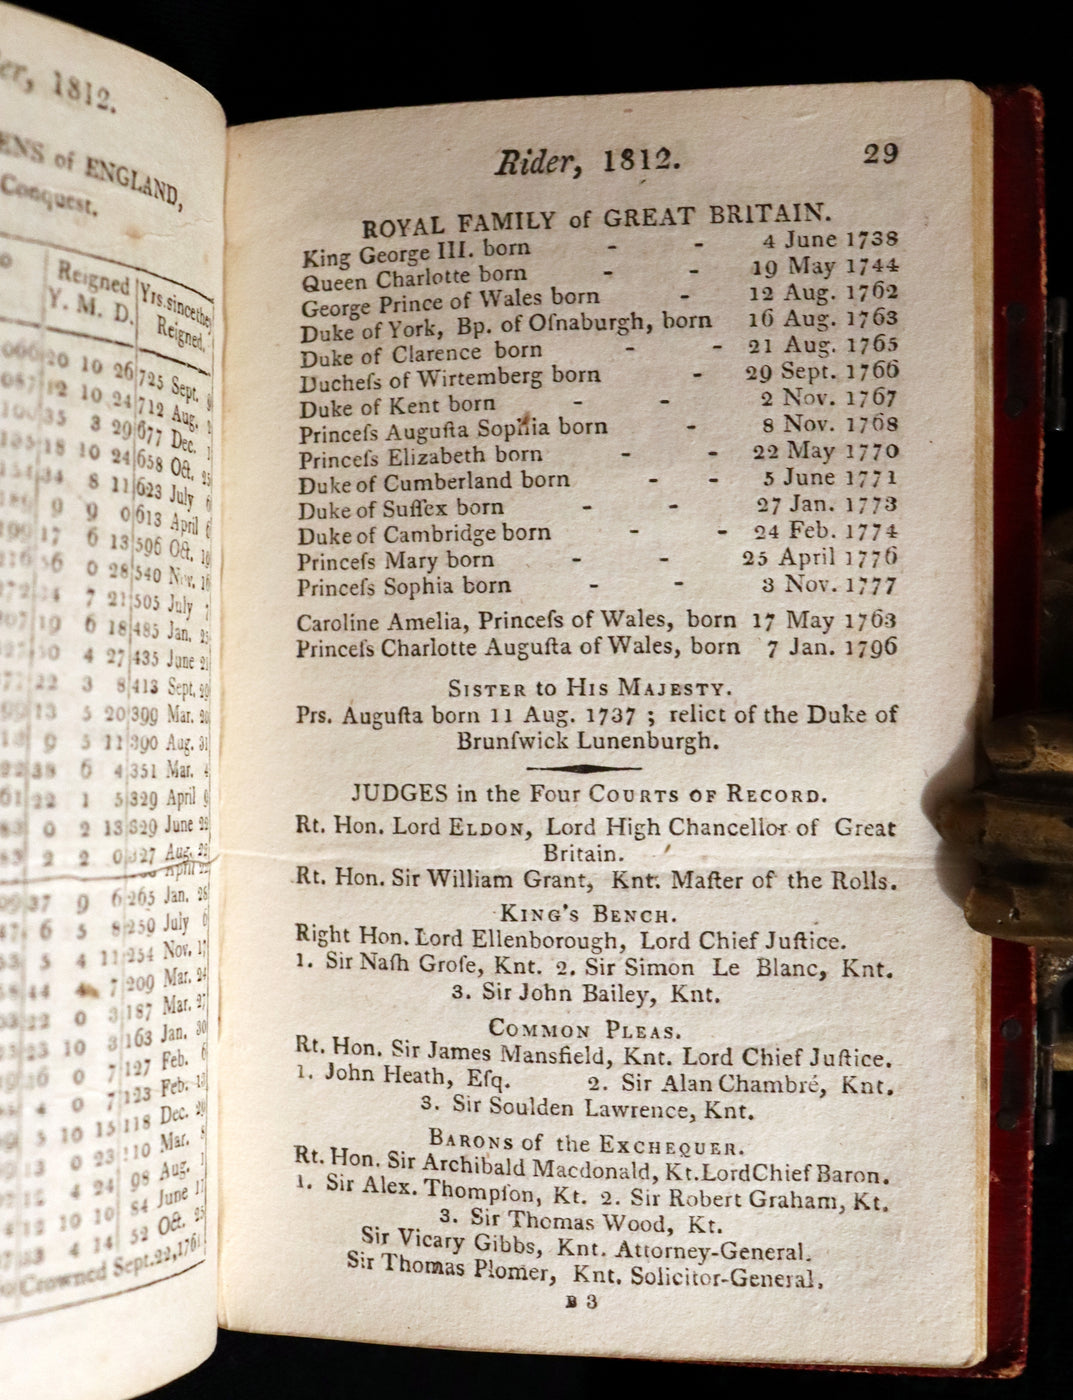 er, 1812.
ENS of ENGLAND,
Conquest.
Reigned Yrs. since they
Y. M. D. Reigned.
20 10 26 725 Sept.
12 10 24 712 Aug.
35 3 29 677 Dec. 1
18 10 24 658 Oct. 25
34 8 11 623 July 6
9 9 0 613 April 6
17 6 13 596 Oct. 19
56 0 28 540 Nov. 16
34 7 21 505 July 7
19 6 18 485 Jan. 25
50 4 27 435 June 21
22 3 8 413 Sept. 29
13 5 20 399 Mar. 20
9 5 11 390 Aug. 31
38 6 4 351 Mar. 4
22 1 5 329 April 9
0 2 13 329 June 22
2 2 0 327 Aug. 22
April 22
37 9 6 265 Jan. 28
6 5 8 259 July 6
5 4 11 254 Nov. 17
44 4 7 209 Mar. 24
22 0 3 187 Mar. 27
23 10 3 163 Jan. 30
0 7 127 Feb. 6
4 0 7 123 Feb. 13
5 10 15 118 Dec. 29
13 0 23 110 Mar. 8
12 4 24 98 Aug. 1
12 10 10 84 June 11
33 4 14 52 Oct. 25
Crowned Sept. 22, 1761
Rider, 1812. 29
ROYAL FAMILY of GREAT BRITAIN.
King George III. born - - 4 June 1738
Queen Charlotte born - - 19 May 1744
George Prince of Wales born - 12 Aug. 1762
Duke of York, Bp. of Oſnaburgh, born 16 Aug. 1763
Duke of Clarence born - - 21 Aug. 1765
Ducheſs of Wirtemberg born - 29 Sept. 1766
Duke of Kent born - - 2 Nov. 1767
Princeſs Auguſta Sophia born - 8 Nov. 1768
Princeſs Elizabeth born - - 22 May 1770
Duke of Cumberland born - - 5 June 1771
Duke of Suſſex born - - 27 Jan. 1773
Duke of Cambridge born - - 24 Feb. 1774
Princeſs Mary born - - 25 April 1776
Princeſs Sophia born - - 3 Nov. 1777
Caroline Amelia, Princeſs of Wales, born 17 May 1763
Princeſs Charlotte Auguſta of Wales, born 7 Jan. 1796
SISTER to HIS MAJESTY.
Prs. Auguſta born 11 Aug. 1737 ; relict of the Duke of
Brunſwick Lunenburgh.
JUDGES in the Four COURTS OF RECORD.
Rt. Hon. Lord ELDON, Lord High Chancellor of Great
Britain.
Rt. Hon. Sir William Grant, Knt. Maſter of the Rolls.
KING'S BENCH.
Right Hon. Lord Ellenborough, Lord Chief Juſtice.
1. Sir Naſh Groſe, Knt. 2. Sir Simon Le Blanc, Knt.
3. Sir John Bailey, Knt.
COMMON PLEAS.
Rt. Hon. Sir James Mansfield, Knt. Lord Chief Juſtice.
1. John Heath, Eſq. 2. Sir Alan Chambré, Knt.
3. Sir Soulden Lawrence, Knt.
BARONS of the EXCHEQUER.
Rt. Hon. Sir Archibald Macdonald, Kt. Lord Chief Baron.
1. Sir Alex. Thompſon, Kt. 2. Sir Robert Graham, Kt.
3. Sir Thomas Wood, Kt.
Sir Vicary Gibbs, Knt. Attorney-General.
Sir Thomas Plomer, Knt. Solicitor-General.
B 3